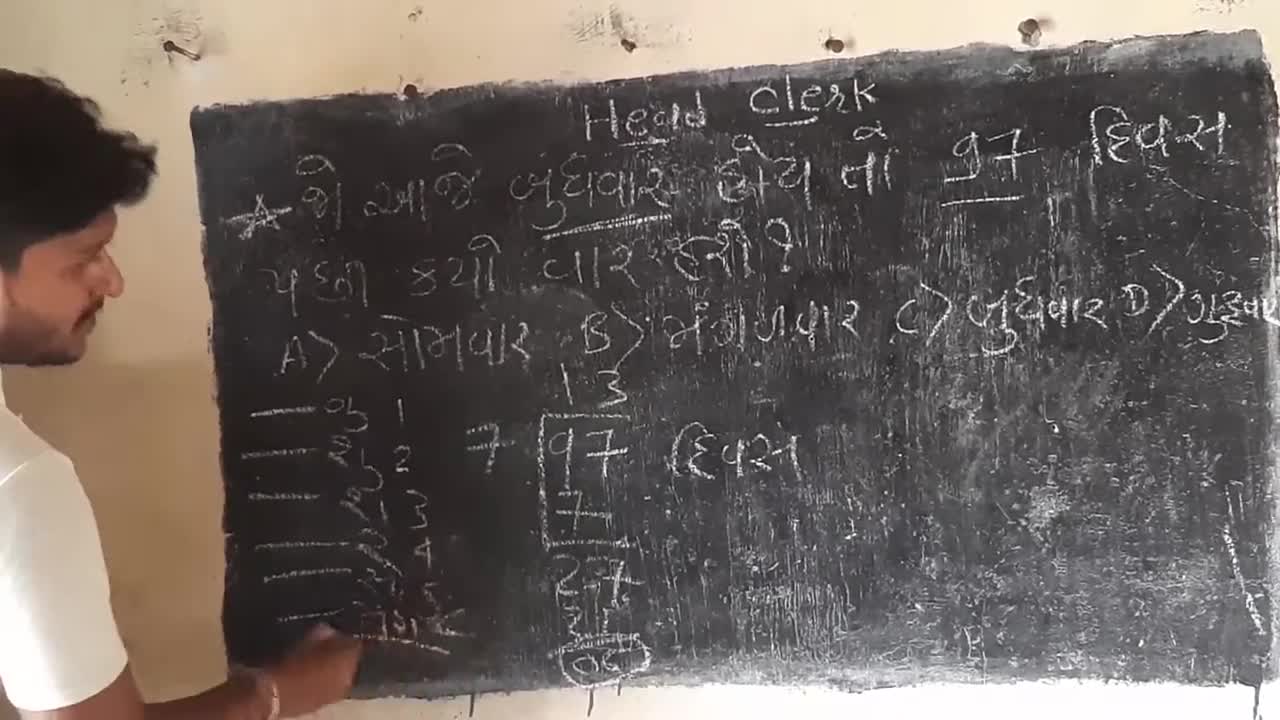 Head Clerk
જો આજે બુધવાર હોય તો 97 દિવસ
પછી કયો વાર હશે?
A> સોમવાર B> મંગળવાર C> બુધવાર D> ગુરૂવાર
13
7 97 દિવસ
7
27
21
06
ગુ 1
શુ 2
શ 3
ર 4
સો 5